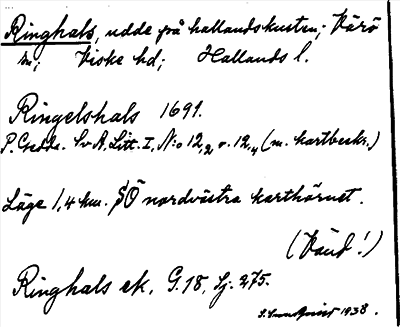 Ringhals, udde på hallandskusten; Värö
sn; Viske hd; Hallands l.
Ringelshals 1691.
P. Gedda. SvA. Litt. I, N:o 12,2 o. 12,4 (m. kartbeskr.)
Läge 1,4 km. SÖ nordvästra karthörnet.
(Vänd!)
Ringhals ek. G. 18, Lj. 275.
1938.